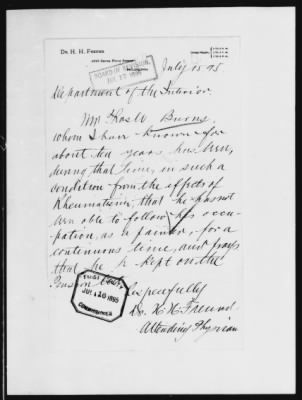 Dr. H. H. Freund
BOARD OF REVIEW.
JUL 17 1895
July 15 95
Department of the Interior.
Mr Thos W Burns
whom I have known for
about ten years has been,
during that time, in such a
condition from the effects of
Rheumatism, that he has not
been able to follow his occu-
pation, as a painter, for a
continuous time, and prays
that he is kept on the
Pension
Respectfully
Dr. H H Freund
Attending Physician
JUL 16 1895